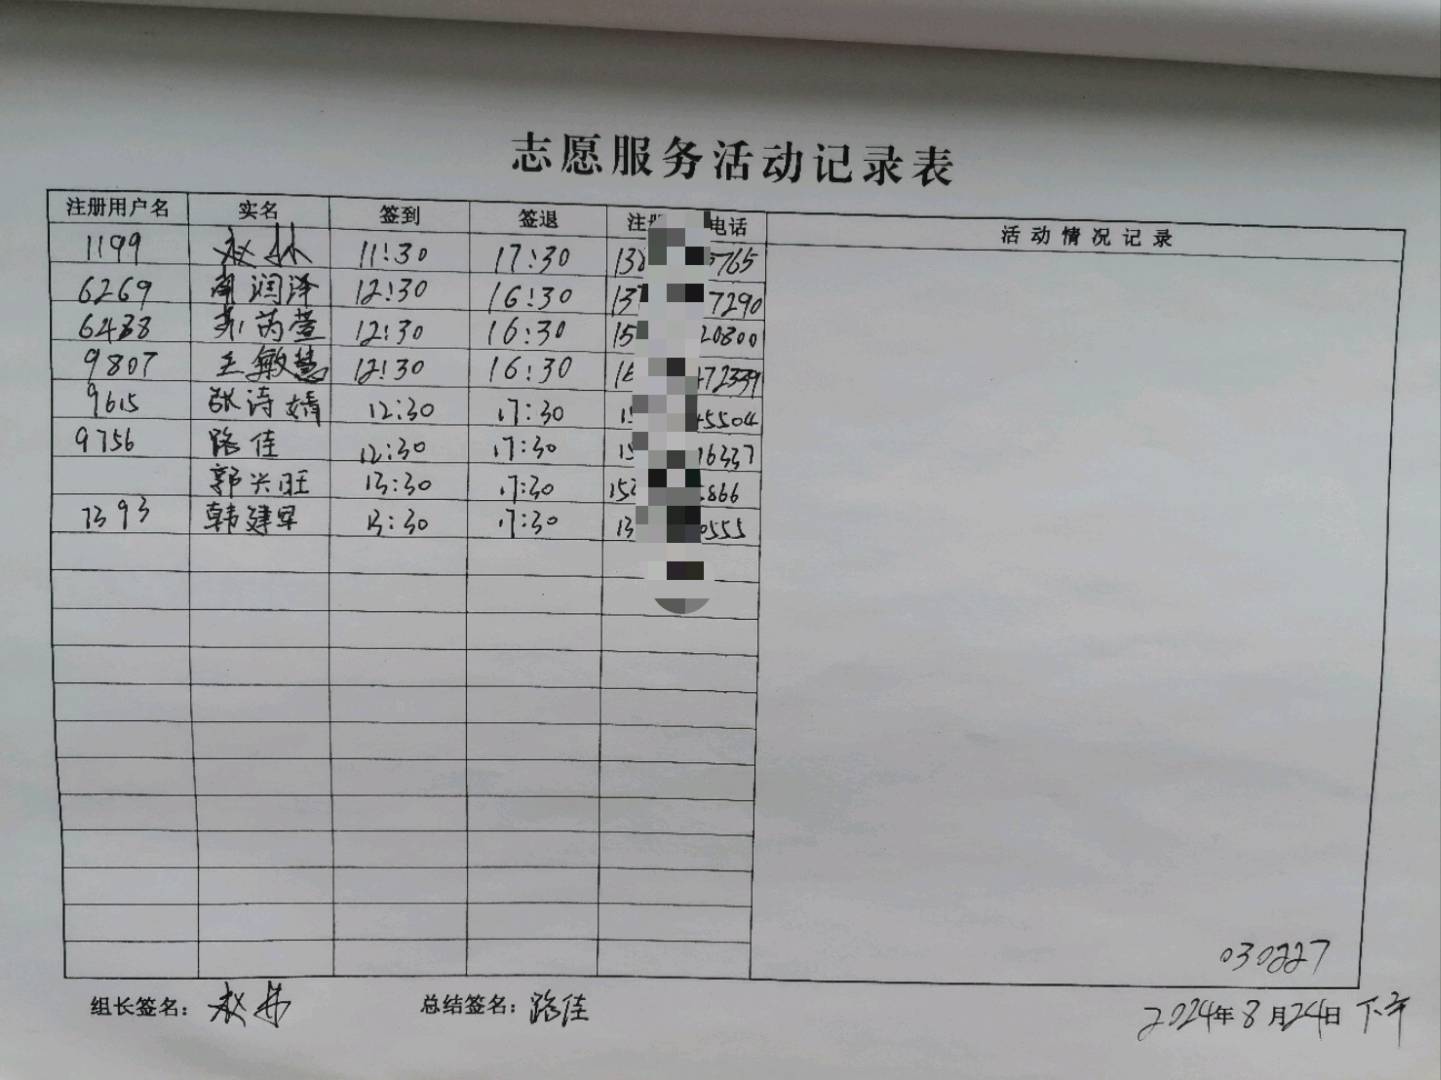 志愿服务活动记录表
注册用户名 实名 签到 签退 注册 电话 活动情况记录
1199 11:30 17:30 138 765
6269 润泽 12:30 16:30 137 7290
6438 芮萱 12:30 16:30 15 20800
9807 王敏慧 12:30 16:30 16 72339
9615 张诗婧 12:30 17:30 15 45504
9756 路佳 12:30 17:30 15 16337
郭兴旺 13:30 17:30 152 866
7393 韩建军 13:30 17:30 13 0555
030227
组长签名: 总结签名: 路佳 2024年8月24日 下午